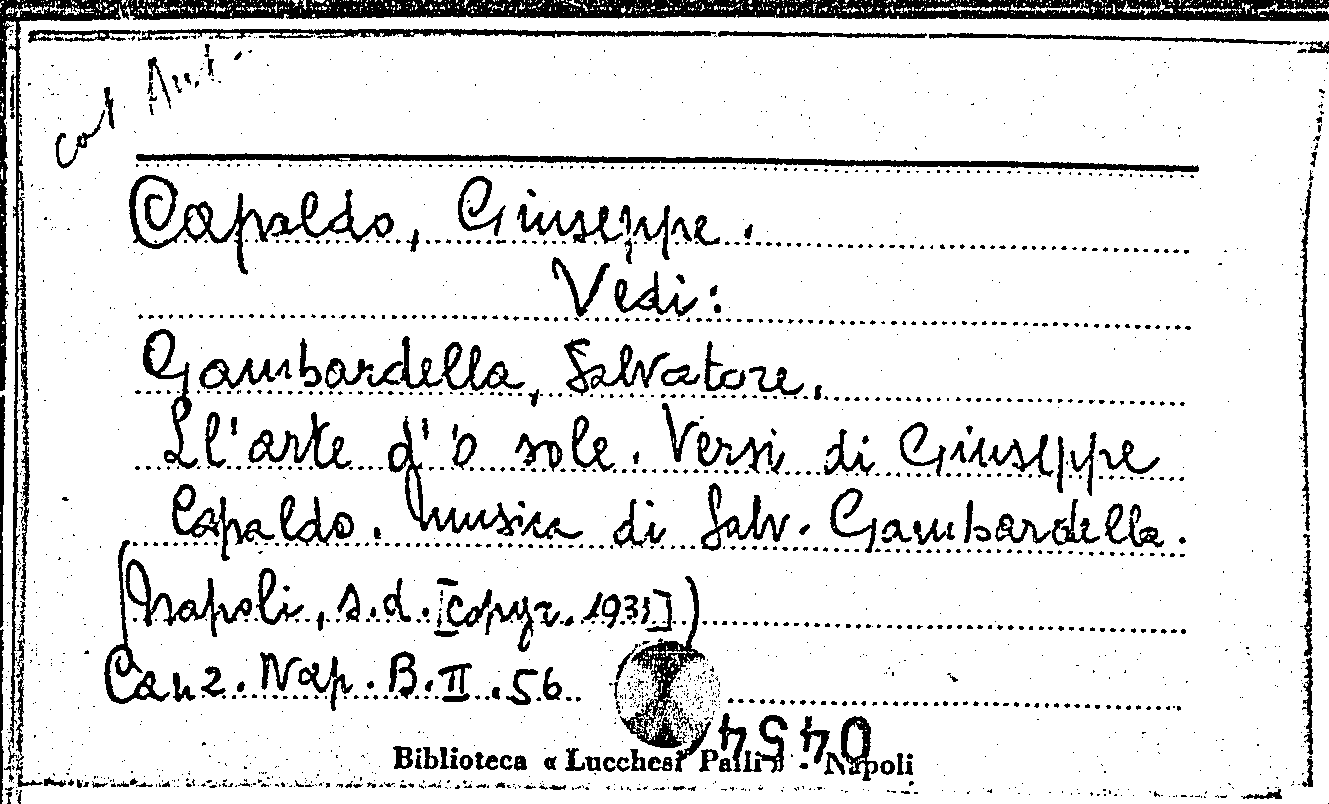 cat Aut.
Capaldo, Giuseppe.
Vedi:
Gambardella, Salvatore.
Ll'arte d' 'o sole. Versi di Giuseppe
Capaldo. Musica di Salv. Gambardella.
(Napoli, s.d. [copyr. 1931])
Canz. Nap. B. II. 56
0454
Biblioteca « Lucchesi Palli » - Napoli